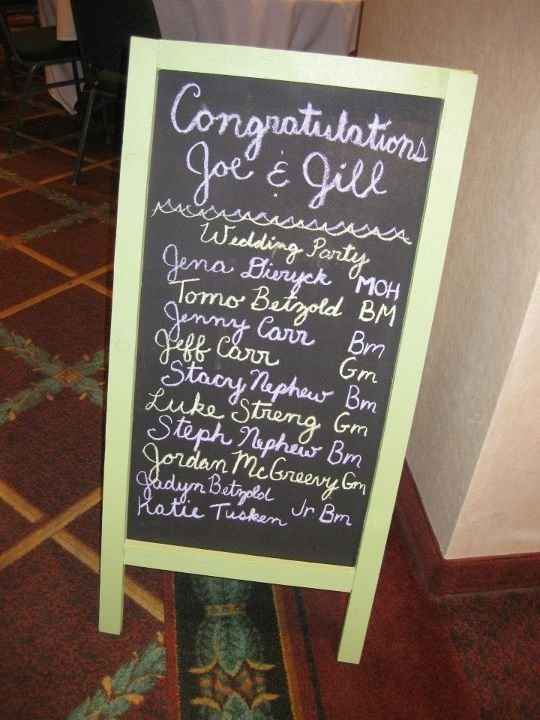 Congratulations
Joe & Jill
Wedding Party
Jena Dieryck MOH
Tomo Betzold BM
Jenny Carr Bm
Jeff Carr Gm
Stacy Nephew Bm
Luke Streng Gm
Steph Nephew Bm
Jordan McGreevy Gm
Jadyn Betzold
Katie Tusken Jr Bm